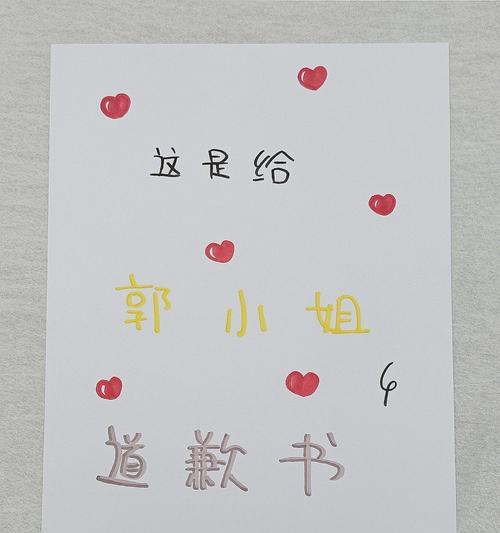 这是给
郭小姐
道歉书